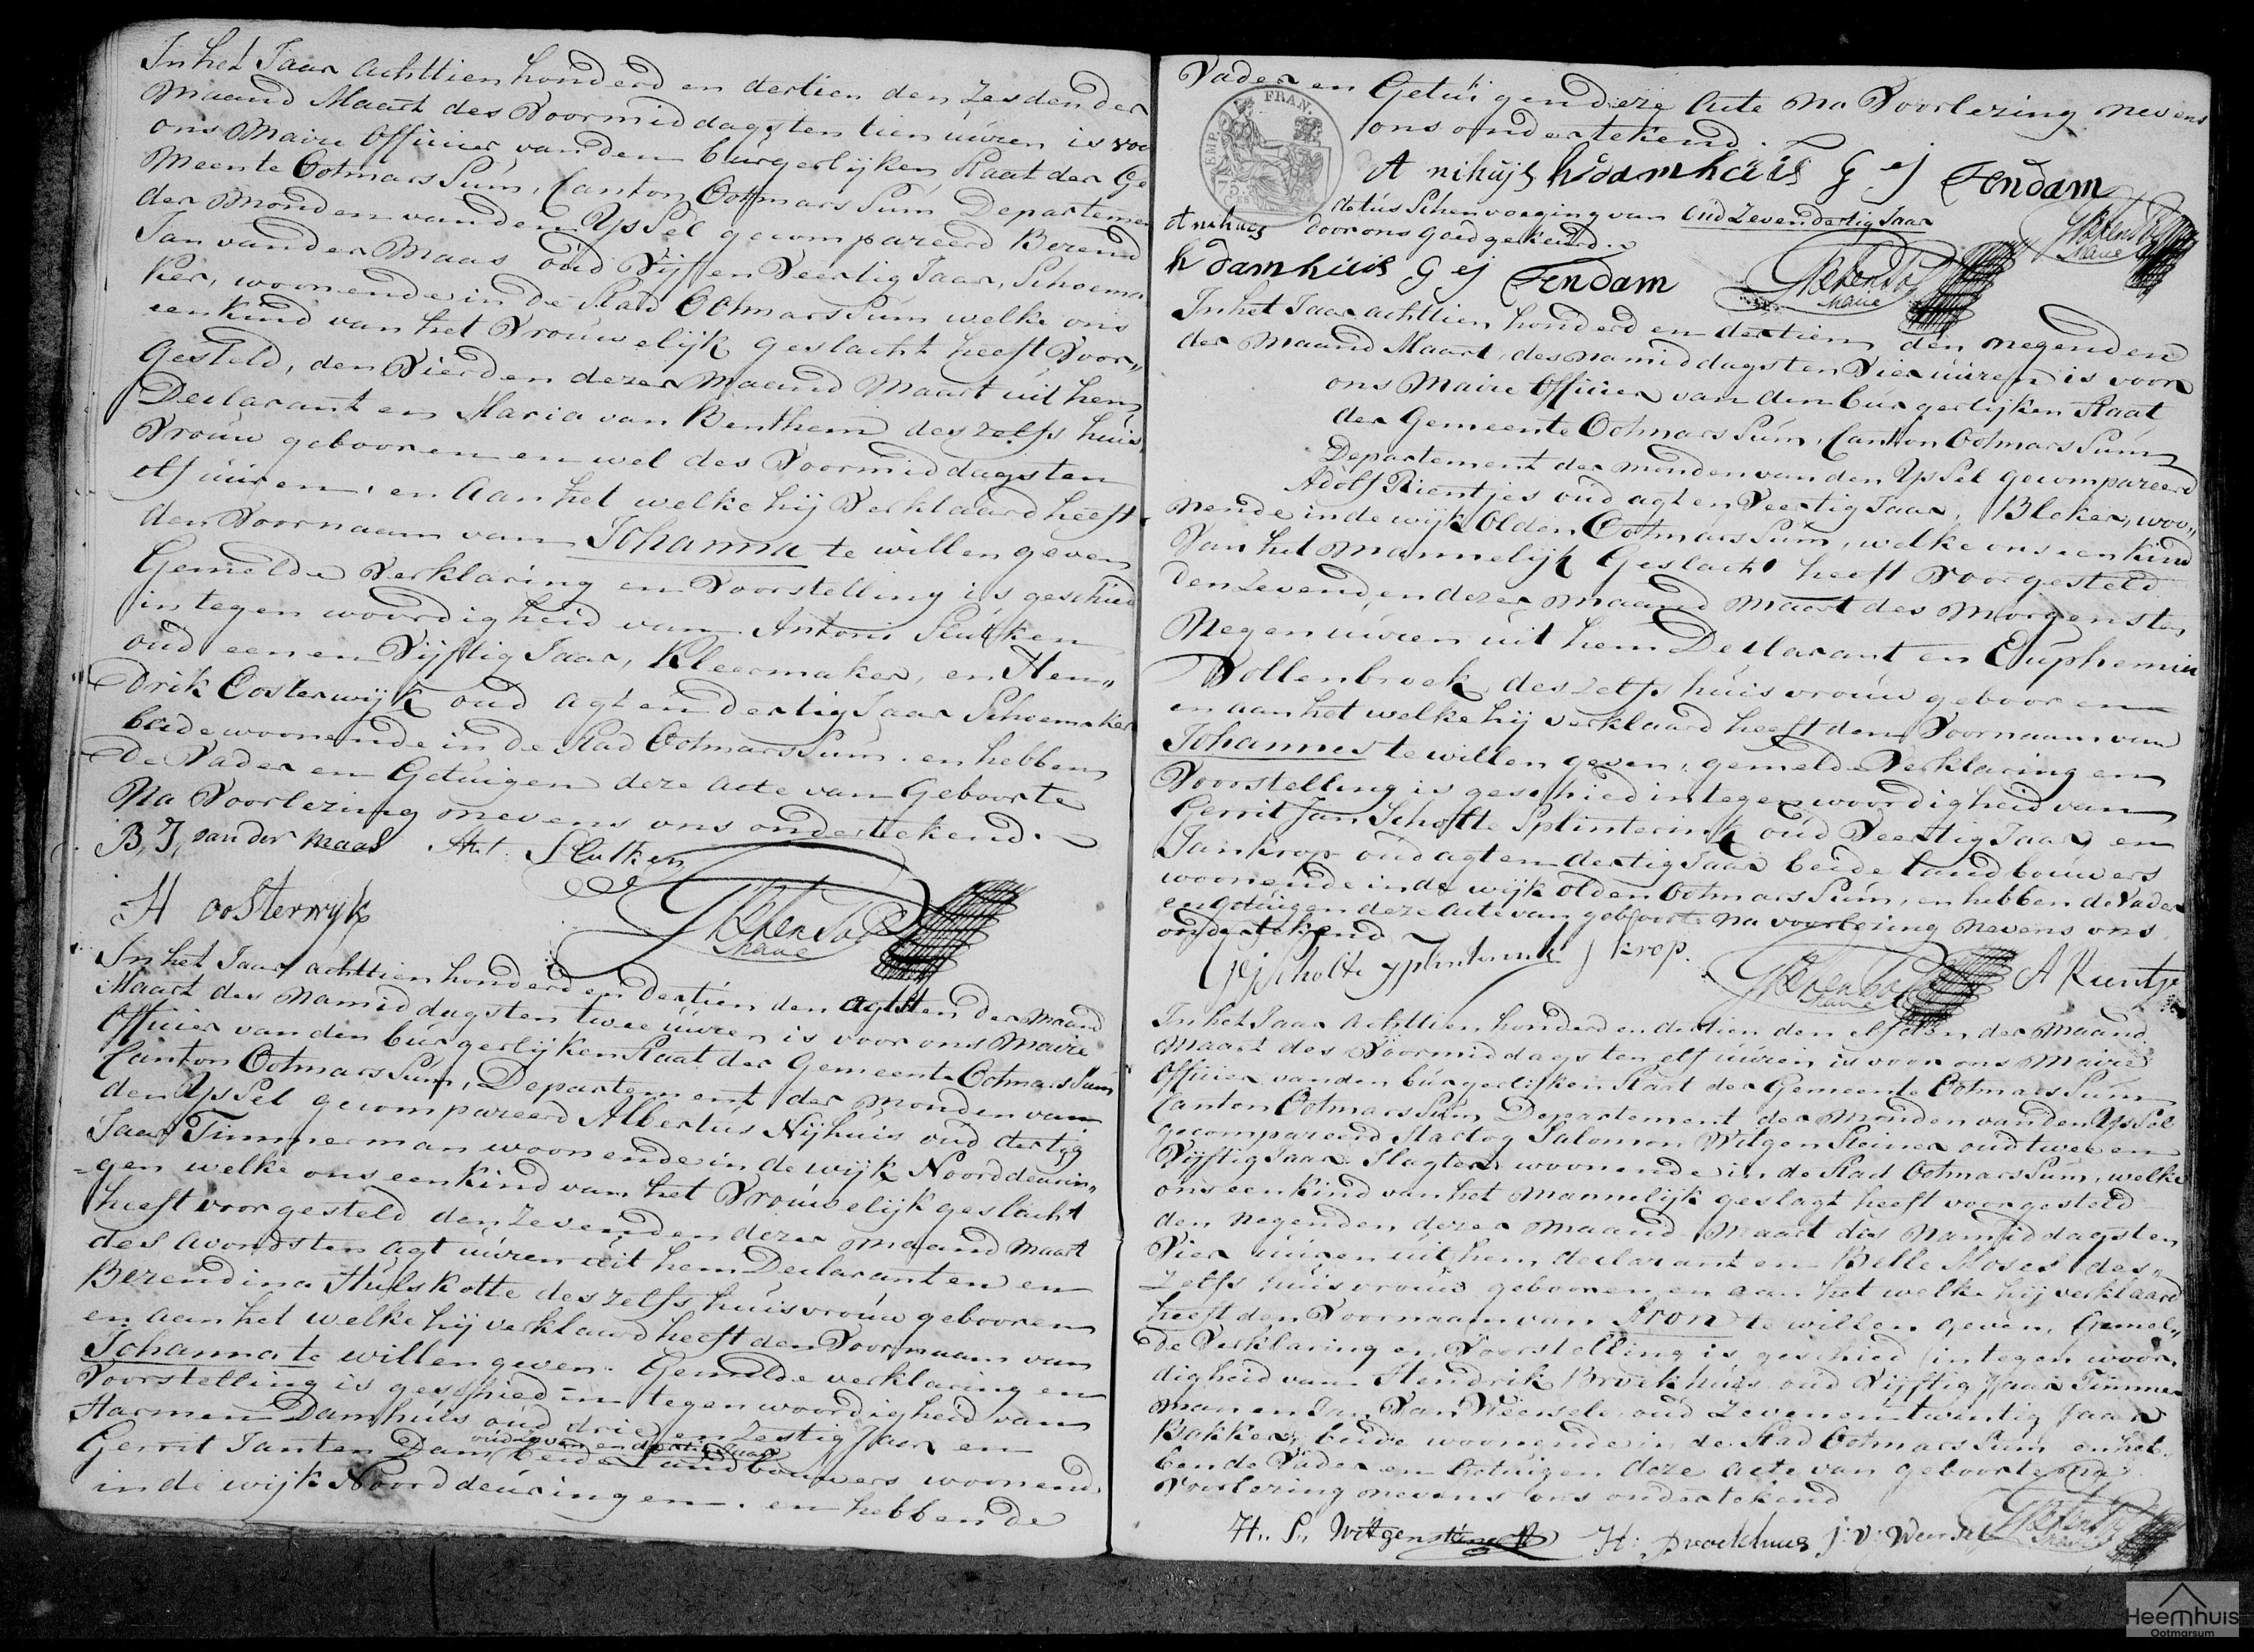 In het Jaar achttien honderd en dertien den Zesden der
Maand Maart des Voormiddags ten tien uúren is voo
ons Maire Officier van den burgerlijken Staat der Ge
Meente OotmarsSúm, Canton OotmarsSúm Departemen
der Monden van den YsSel gecompareerd Berend
Jan van der Maas oúd Vijf en Veertig Jaar, Schoema
ker, woonende in de Stad OotmarsSúm welke ons
een kind van het Vroúwelijk geslacht heeft Voor„
gesteld, den Vierden dezer Maand Maart uit hem
Declarant en Maria van Benthem deszelfs huis
Vroúw gebooren en wel des Voormiddags ten
elf uúren, en Aan het welke hij Verklaard heeft
den Voornaam van Johanna te willen geven
Gemelde Verklaring en Voorstelling is geschied
in tegenwoordigheid van Antoni Slutken
oud een en Vijftig Jaar, Kleermaker, en Hen„
drik Oosterwijk oúd agt en dertig Jaar Schoemaker
beide woonende in de Stad OotmarsSúm. en hebben
de Vader en Getúigen deze acte van Geboorte
Na Voorlezing nevens ons ondertekend.
B, J, van der maas Ant. Slutken
H oosterwyk
Maire
In het Jaar achttien honderd en dertien den agtsten der Maand
Maart des Namiddags ten twee uúren is voor ons Maire
Officier van den búrgerlijken Staat der Gemeente OotmarsSúm
Canton OotmarsSúm, Departement der Monden van
den YsSel gecompareerd Albertús Nijhúis oúd dertyg
Jaar Timmerman woonende in de wijk Noorddeurin„
=gen welke ons een kind van het Vroúwelijk geslacht
heeft voorgesteld den Zevenden dezer Maand Maart
des avonds ten agt uúren uit hem Declarant en en
Berendina Húlskotte deszelfs huisvroúw gebooren
en aan het welke hij verklaard heeft den Voornaam van
Johanna te willen geven. Gemelde verklaring en
Voorstelling is geschied in tegenwoordigheid van
Harmen Damhúis oúd drie en Zestig Jaar en
oúd zeven en dertig Jaar
Gerrit Jan ten Dam beide Landboúwers woonend
in de wijk Noorddeúringen. en hebben de
Vader en Getúigen deze Acte Na Voorlezing nevens
ons ondertekend.
EMP. FRAN.
75. Ces
A nihuis h damhuis G ej Tendam
Maire
de túsSchenvoeging van oúd Zevendertig Jaar
door ons Goedgekeurd.
A nihuis
h damhuis G ej Tendam
Maire
In het Jaar achttien honderd en dertien den negenden
der Maand Maart, des namiddags ten Vier uúren is voor
ons Maire Officier van den búrgerlijken Staat
der Gemeente OotmarsSúm, Canton OotmarsSúm
Departement der Monden van den YsSel gecompareerd
Adolf Rientjes oúd agt en Veertig Jaar, Bleker, woo„
nende in de wijk Olden OotmarsSúm, welke ons een kind
Van het Mannelijk Geslacht heeft Voorgesteld
den Zevenden dezer Maand Maart des Morgens ten
Negen uúren uit hem Declarant en Euphemia
Vollenbroek, deszelfs húisvroúw gebooren
en aan het welke hij verklaard heeft den Voornaam van
Johannes te willen geven, gemelde Verklaring en
Voorstelling is geschied in tegenwoordigheid van
Gerrit Jan Scholte Splinterink oúd Veertig Jaar, en
Jan Krop oúd agt en dertig Jaar beide landboúwers
woonende in de wijk olden OotmarsSúm, en hebben de Vader
en getúigen deze acte van geboorte na voorlezing nevens ons
ondertekend
J krop. Maire A Rientje
In het Jaar Achttien honderd en dertien den elfden der Maand
Maart des Voormiddags ten elf uúren is voor ons Maire
Officier van den búrgerlijken Staat der Gemeente OotmarsSúm
Canton OotmarsSúm Departement der Monden van den YsSel
gecompareerd Hartog Salomon WitgenSteiner oud twee en
Vijftig Jaar. Slagter woonende in de Stad OotmarsSúm, welke
ons een kind van het Mannelijk geslagt heeft voorgesteld
den negenden dezer Maand Maart des Namiddags ten
Vier uúren uit hem declarant en Belle Moses des„
zelfs húisvroúw gebooren en aan het welke hij verklaard
heeft den Voornaam van Aron te willen geven, Gemel„
de Verklaring en Voorstelling is geschied in tegenwoor„
digheid van Hendrik Broekhúis oúd Vijftig Jaar Timmer
man en Jan Van Weersele oúd Zeven en twintig Jaar
Bakker, beide woonende in de Stad OotmarsSúm en heb„
ben de Vader en Getúigen deze acte van geboorte na
Voorlezing nevens ons ondertekend
H.. S.. Witgensteiner H: Broekhuis j: v: WeerSel Maire
Heemhuis
Ootmarsum